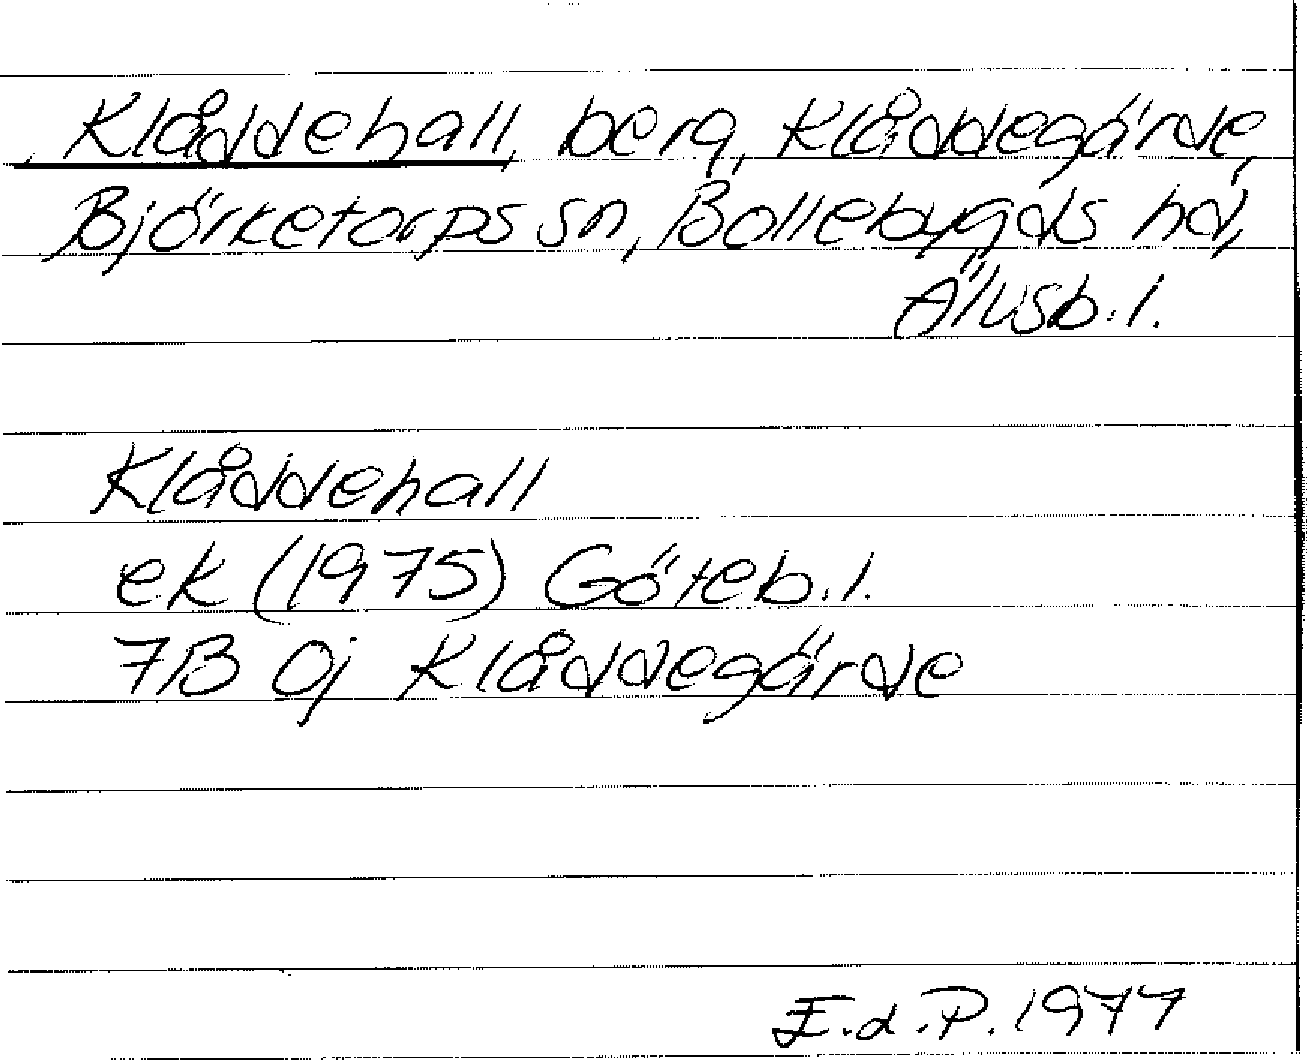 Klåddehall, berg, Klåddegärde,
Björketorps sn, Bollebygds hd,
Älvsb. l.
Klåddehall
ek (1975) Göteb. l.
7B 0j Klåddegärde
E.d.P. 1977